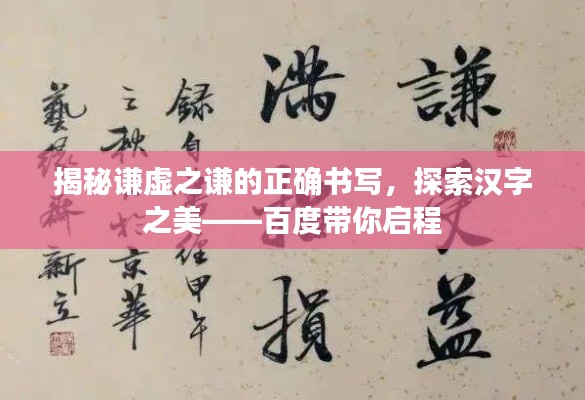 揭秘谦虚之谦的正确书写，探索汉字
之美——百度带你启程
謙
益
滿
損
録自
經甲午
之秋
京華
藝緣齋新立